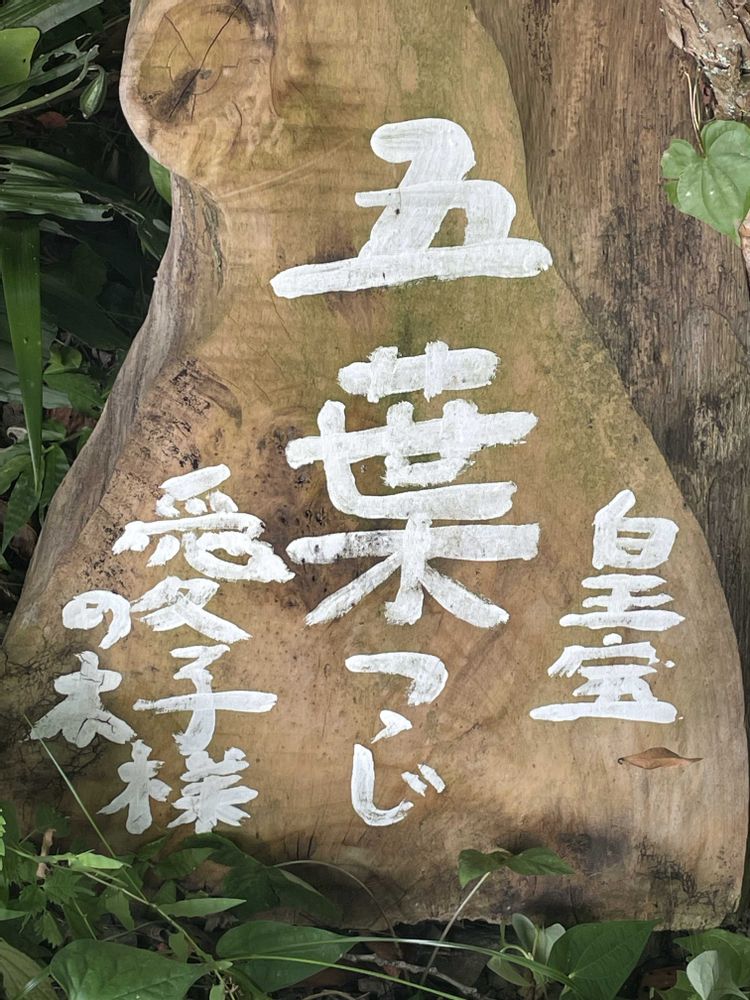 皇室
五葉つゝじ
愛子様
の木